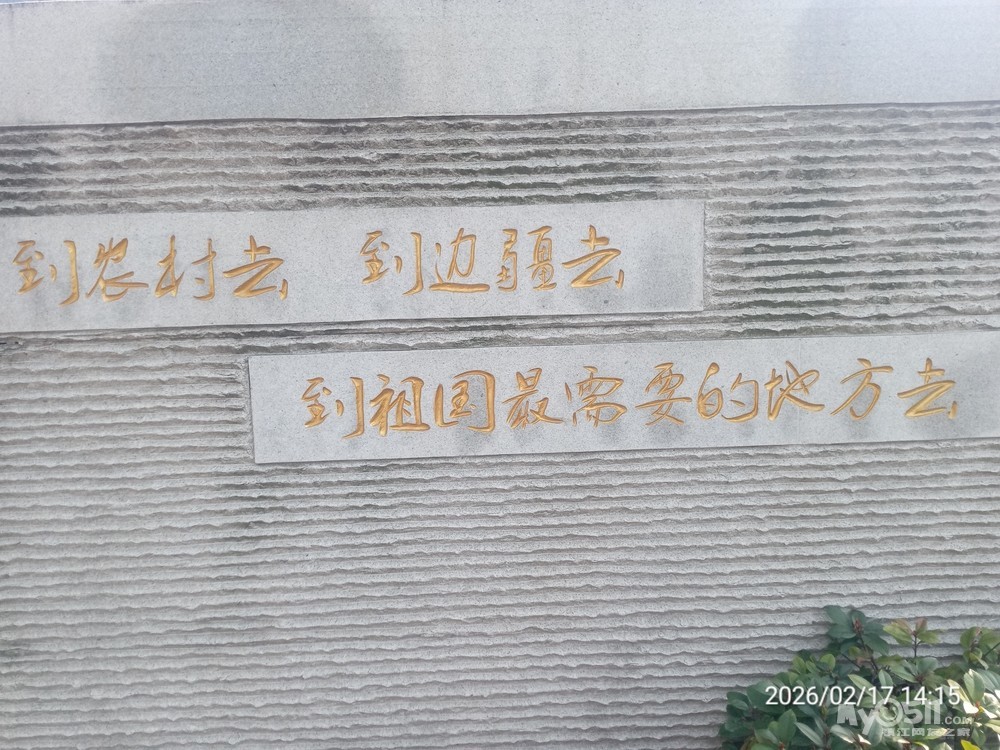 到农村去 到边疆去
到祖国最需要的地方去
2026/02/17 14:15
My0511.COM
镇江网友之家